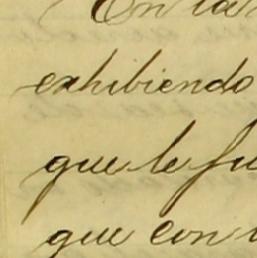 En la
exhibiendo
que le fu
que con